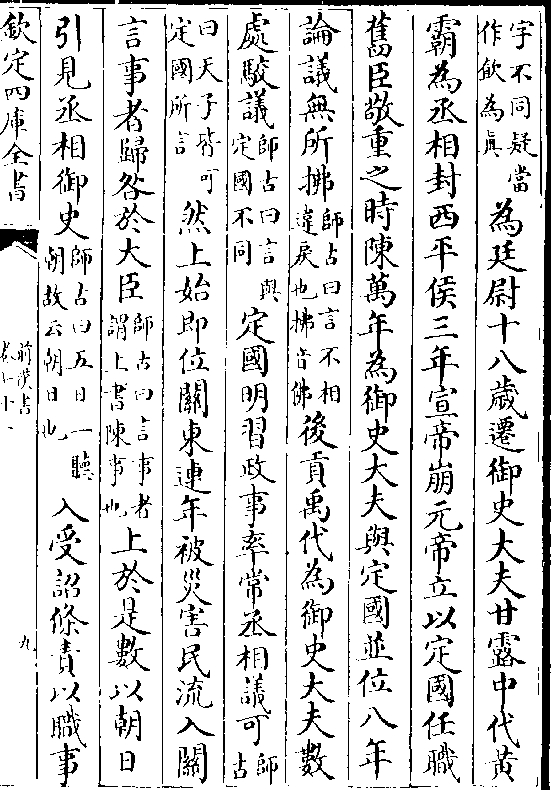 字不同疑當
作飲為真
為廷尉十八歲遷御史大夫甘露中代黃
霸為丞相封西平侯三年宣帝崩元帝立以定國任職
舊臣敬重之時陳萬年為御史大夫與定國並位八年
論議無所拂師古曰言不相
違戾也拂音佛
後貢禹代為御史大夫數
處駮議師古曰言與
定國不同
定國明習政事率常丞相議可師
古
曰天子皆可
定國所言
然上始即位關東連年被災害民流入關
言事者歸咎於大臣師古曰言事者
謂上書陳事也
上於是數以朝日
引見丞相御史師古曰五日一聽
朝故云朝日也
入受詔條責以職事
欽定四庫全書
前漢書
九